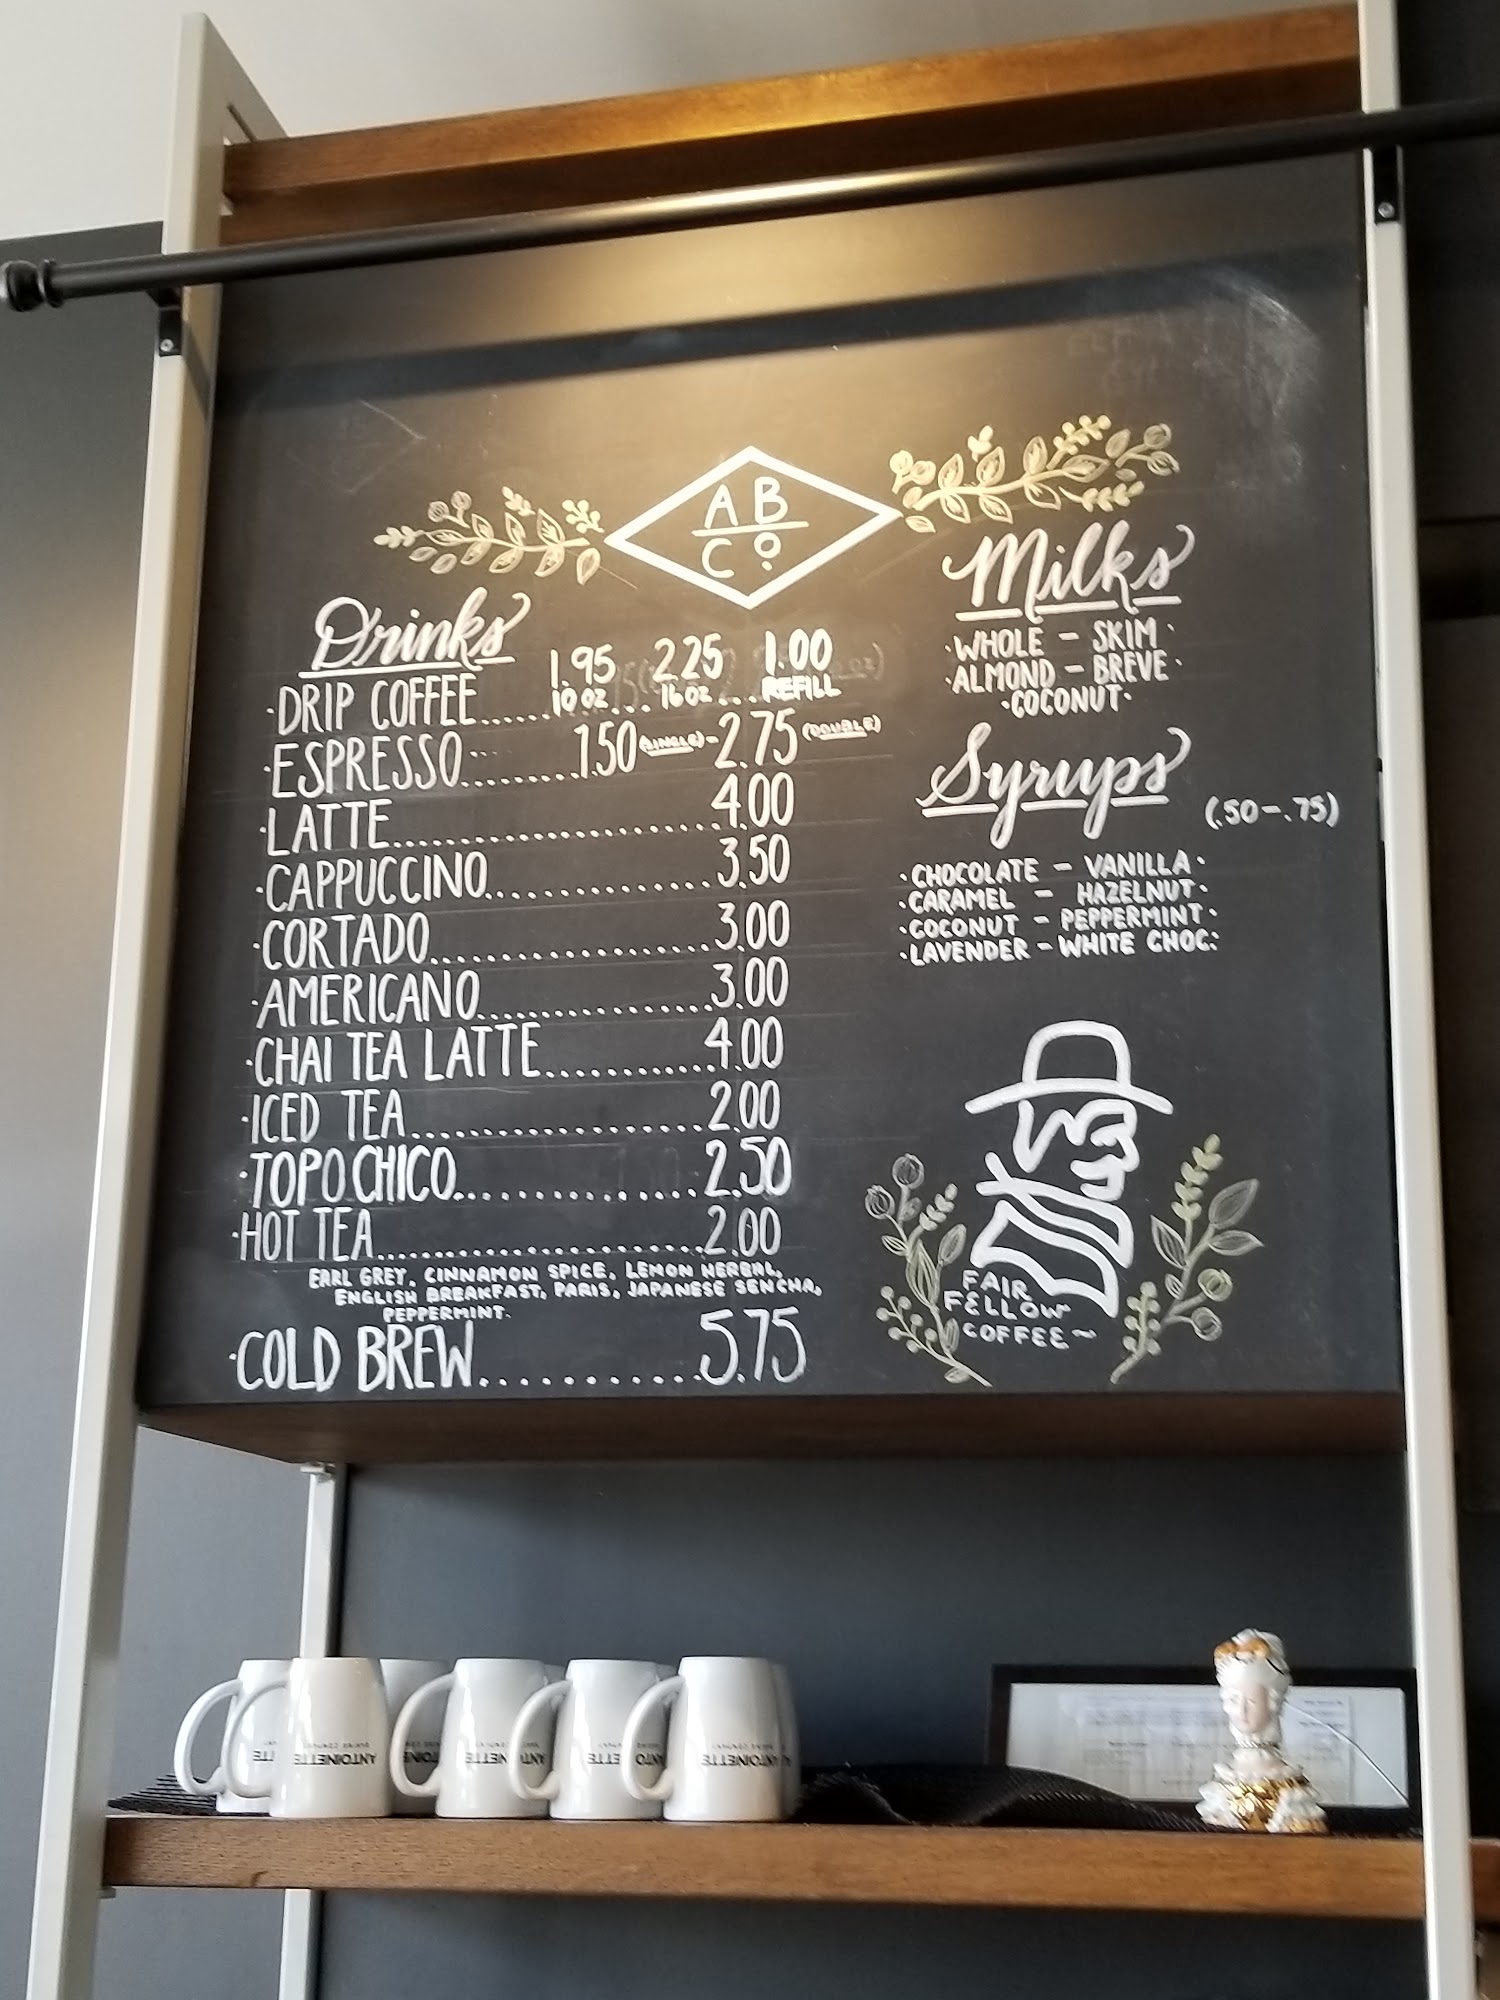 A B
Co
Drinks
1.95 2.25 1.00
·DRIP COFFEE......10 oz....16 oz....REFILL
·ESPRESSO...........1.50 (SINGLE) - 2.75 (DOUBLE)
·LATTE..............................4.00
·CAPPUCCINO....................3.50
·CORTADO.........................3.00
·AMERICANO.....................3.00
·CHAI TEA LATTE..............4.00
·ICED TEA.........................2.00
·TOPO CHICO....................2.50
·HOT TEA...........................2.00
EARL GREY, CINNAMON SPICE, LEMON HERBAL,
ENGLISH BREAKFAST, PARIS, JAPANESE SENCHA,
PEPPERMINT.
·COLD BREW............5.75
Milks
·WHOLE - SKIM·
·ALMOND - BREVE·
·COCONUT·
Syrups
(.50-.75)
·CHOCOLATE - VANILLA·
·CARAMEL - HAZELNUT·
·COCONUT - PEPPERMINT·
·LAVENDER - WHITE CHOC.·
FAIR
FELLOW
COFFEE~
ANTOINETTE
BAKING COMPANY
ANTOINETTE